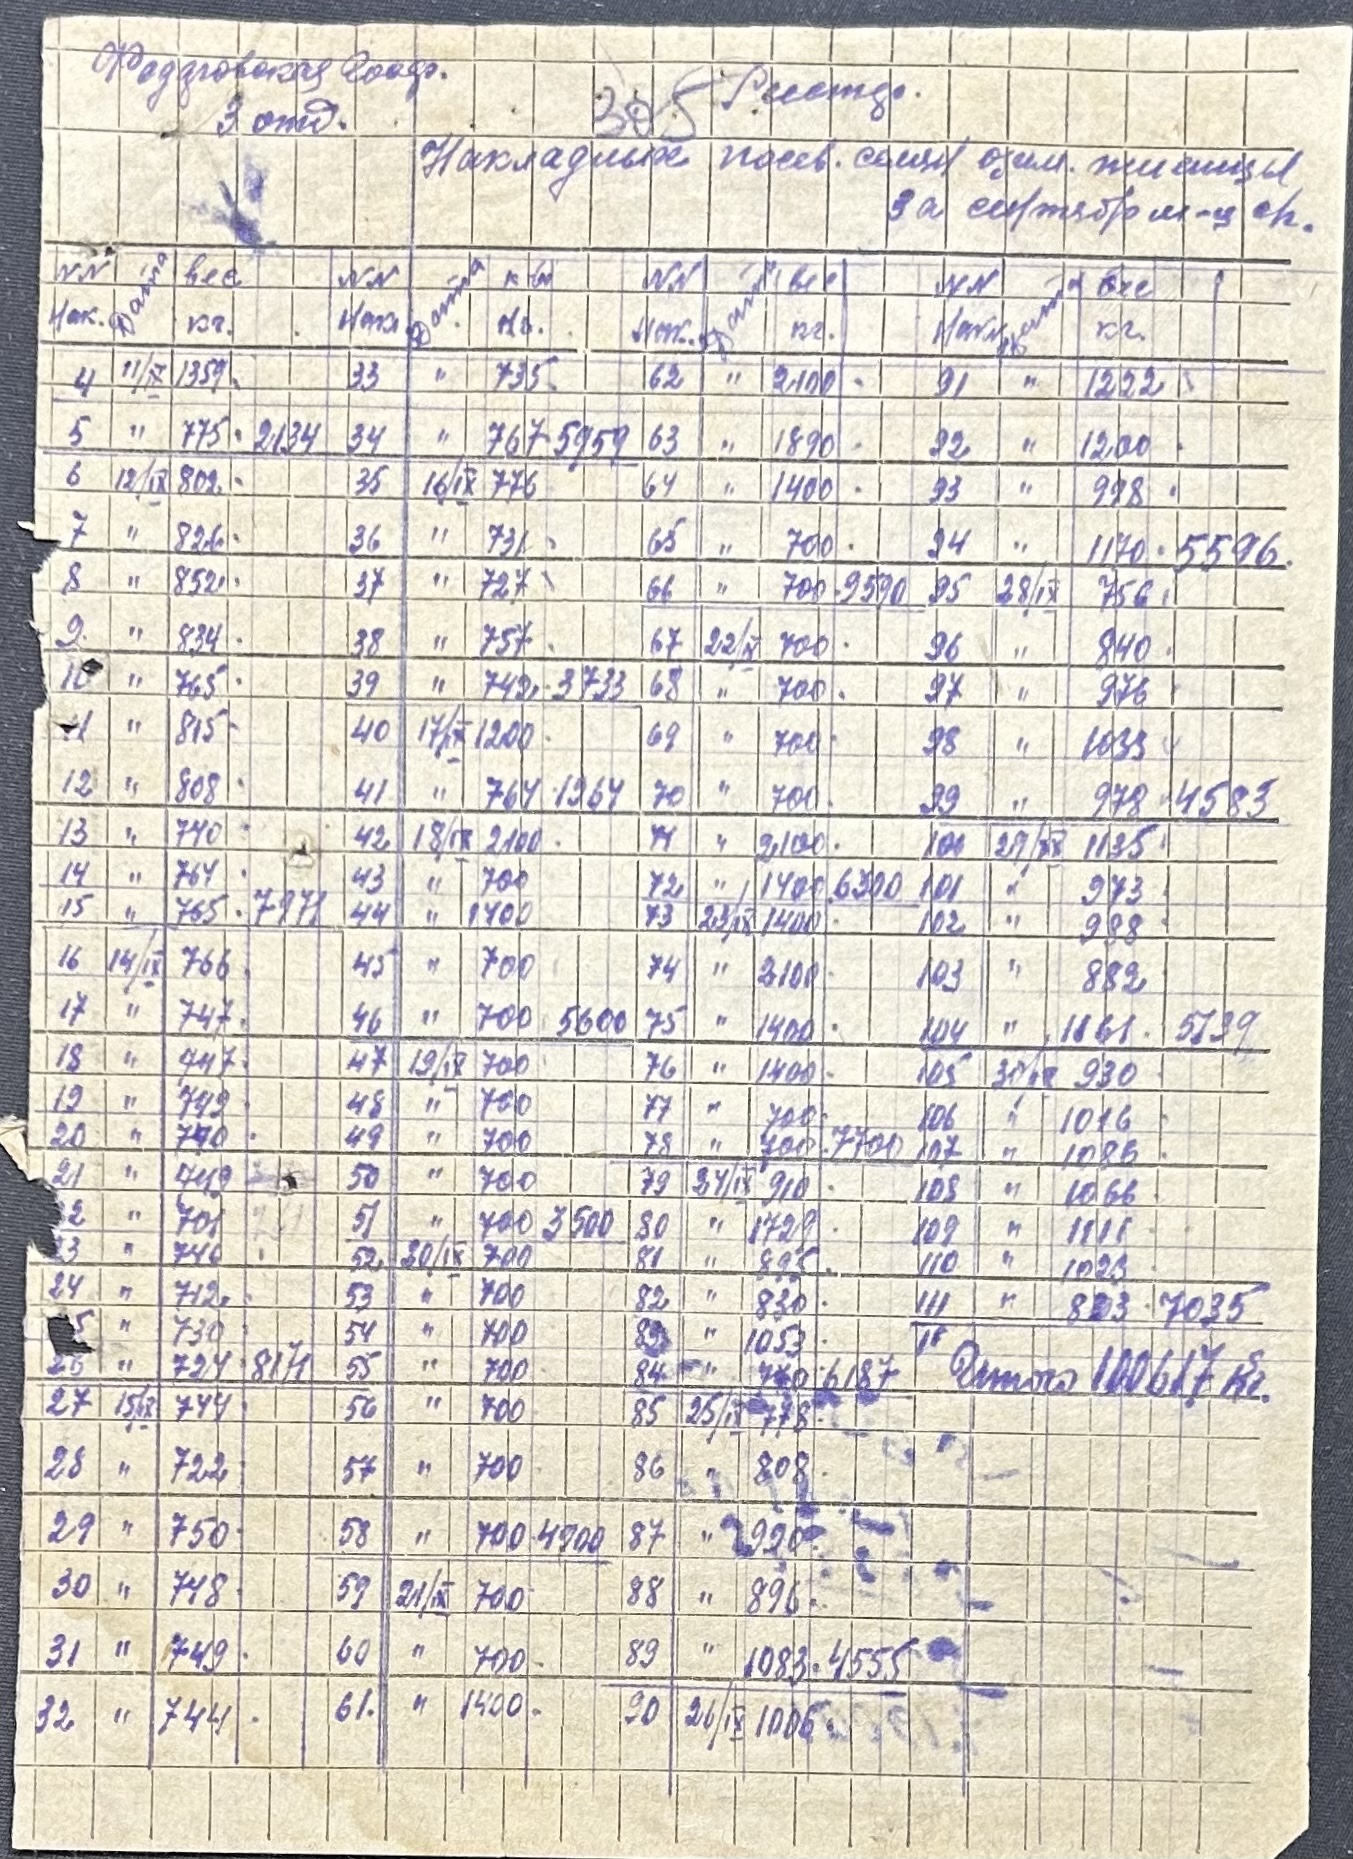 3 отд.
305
Накладных посев. озим. пшеницы
За сентябр м-ц
NN Дата вес NN Дата к-во NN Дата вес NN Дата вес
Нак. кг. Накл кг. Нак. кг. Накл кг.
4 11/IX 1359 33 " 735 62 " 2100 91 " 1222
5 " 775 2134 34 " 767 5959 63 " 1890 92 " 1200
6 12/IX 802 35 16/IX 776 64 " 1400 93 " 998
7 " 826 36 " 731 65 " 700 94 " 1170 5596
8 " 852 37 " 727 66 " 700 9590 95 28/IX 756
9 " 834 38 " 757 67 22/IX 700 96 " 840
10 " 765 39 " 742 3733 68 " 700 97 " 976
11 " 815 40 17/IX 1200 69 " 700 98 " 1033
12 " 808 41 " 764 1964 70 " 700 99 " 978 4583
13 " 740 42 18/IX 2100 71 " 2100 100 29/IX 1135
14 " 764 43 " 700 72 " 1400 6300 101 " 973
15 " 765 7971 44 " 1400 73 23/IX 1400 102 " 988
16 14/IX 766 45 " 700 74 " 2100 103 " 882
17 " 747 46 " 700 5600 75 " 1400 104 " 1161 5139
18 " 747 47 19/IX 700 76 " 1400 105 30/IX 930
19 " 749 48 " 700 77 " 700 106 " 1016
20 " 790 49 " 700 78 " 700 7700 107 " 1086
21 " 50 " 700 79 24/IX 910 108 " 1066
22 " 701 51 " 700 3500 80 " 1729 109 " 1111
23 " 746 52 20/IX 700 81 " 895 110 " 1023
24 " 712 53 " 700 82 " 830 111 " 803 7035
25 " 730 54 " 700 83 " 1053
26 " 724 8171 55 " 700 84 " 770 6187 Итого 100617 кг.
27 15/IX 744 56 " 700 85 25/IX 778
28 " 722 57 " 700 86 " 808
29 " 750 58 " 700 4900 87 " 990
30 " 748 59 21/IX 700 88 " 896
31 " 749 60 " 700 89 " 1083 4555
32 " 744 61 " 1400 90 26/IX 1006